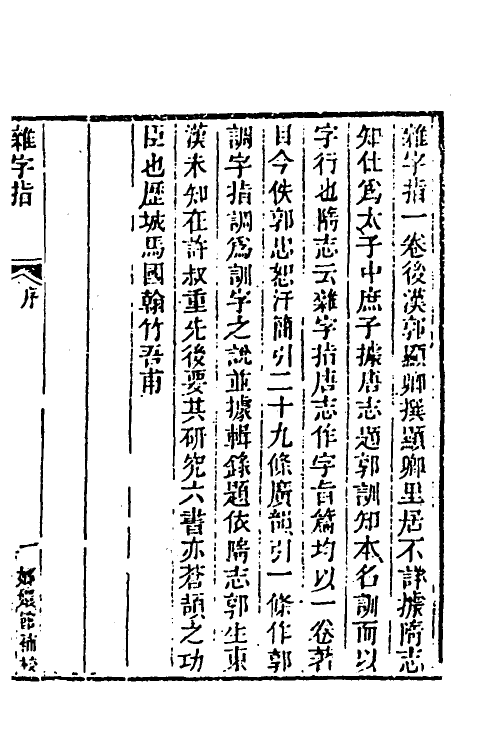 雜字指一卷後漢郭顯卿撰顯卿里居不詳據隋志
知仕爲太子中庶子據唐志題郭訓知本名訓而以
字行也隋志云雜字指唐志作字旨篇均以一卷著
目今佚郭忠恕汗簡引二十九條廣韻引一條作郭
調字指調爲訓字之說並據輯錄題依隋志郭生東
漢未知在許叔重先後要其研究六書亦蒼頡之功
臣也歷城馬國翰竹吾甫
雜字指
序
一
嫏嬛館補校